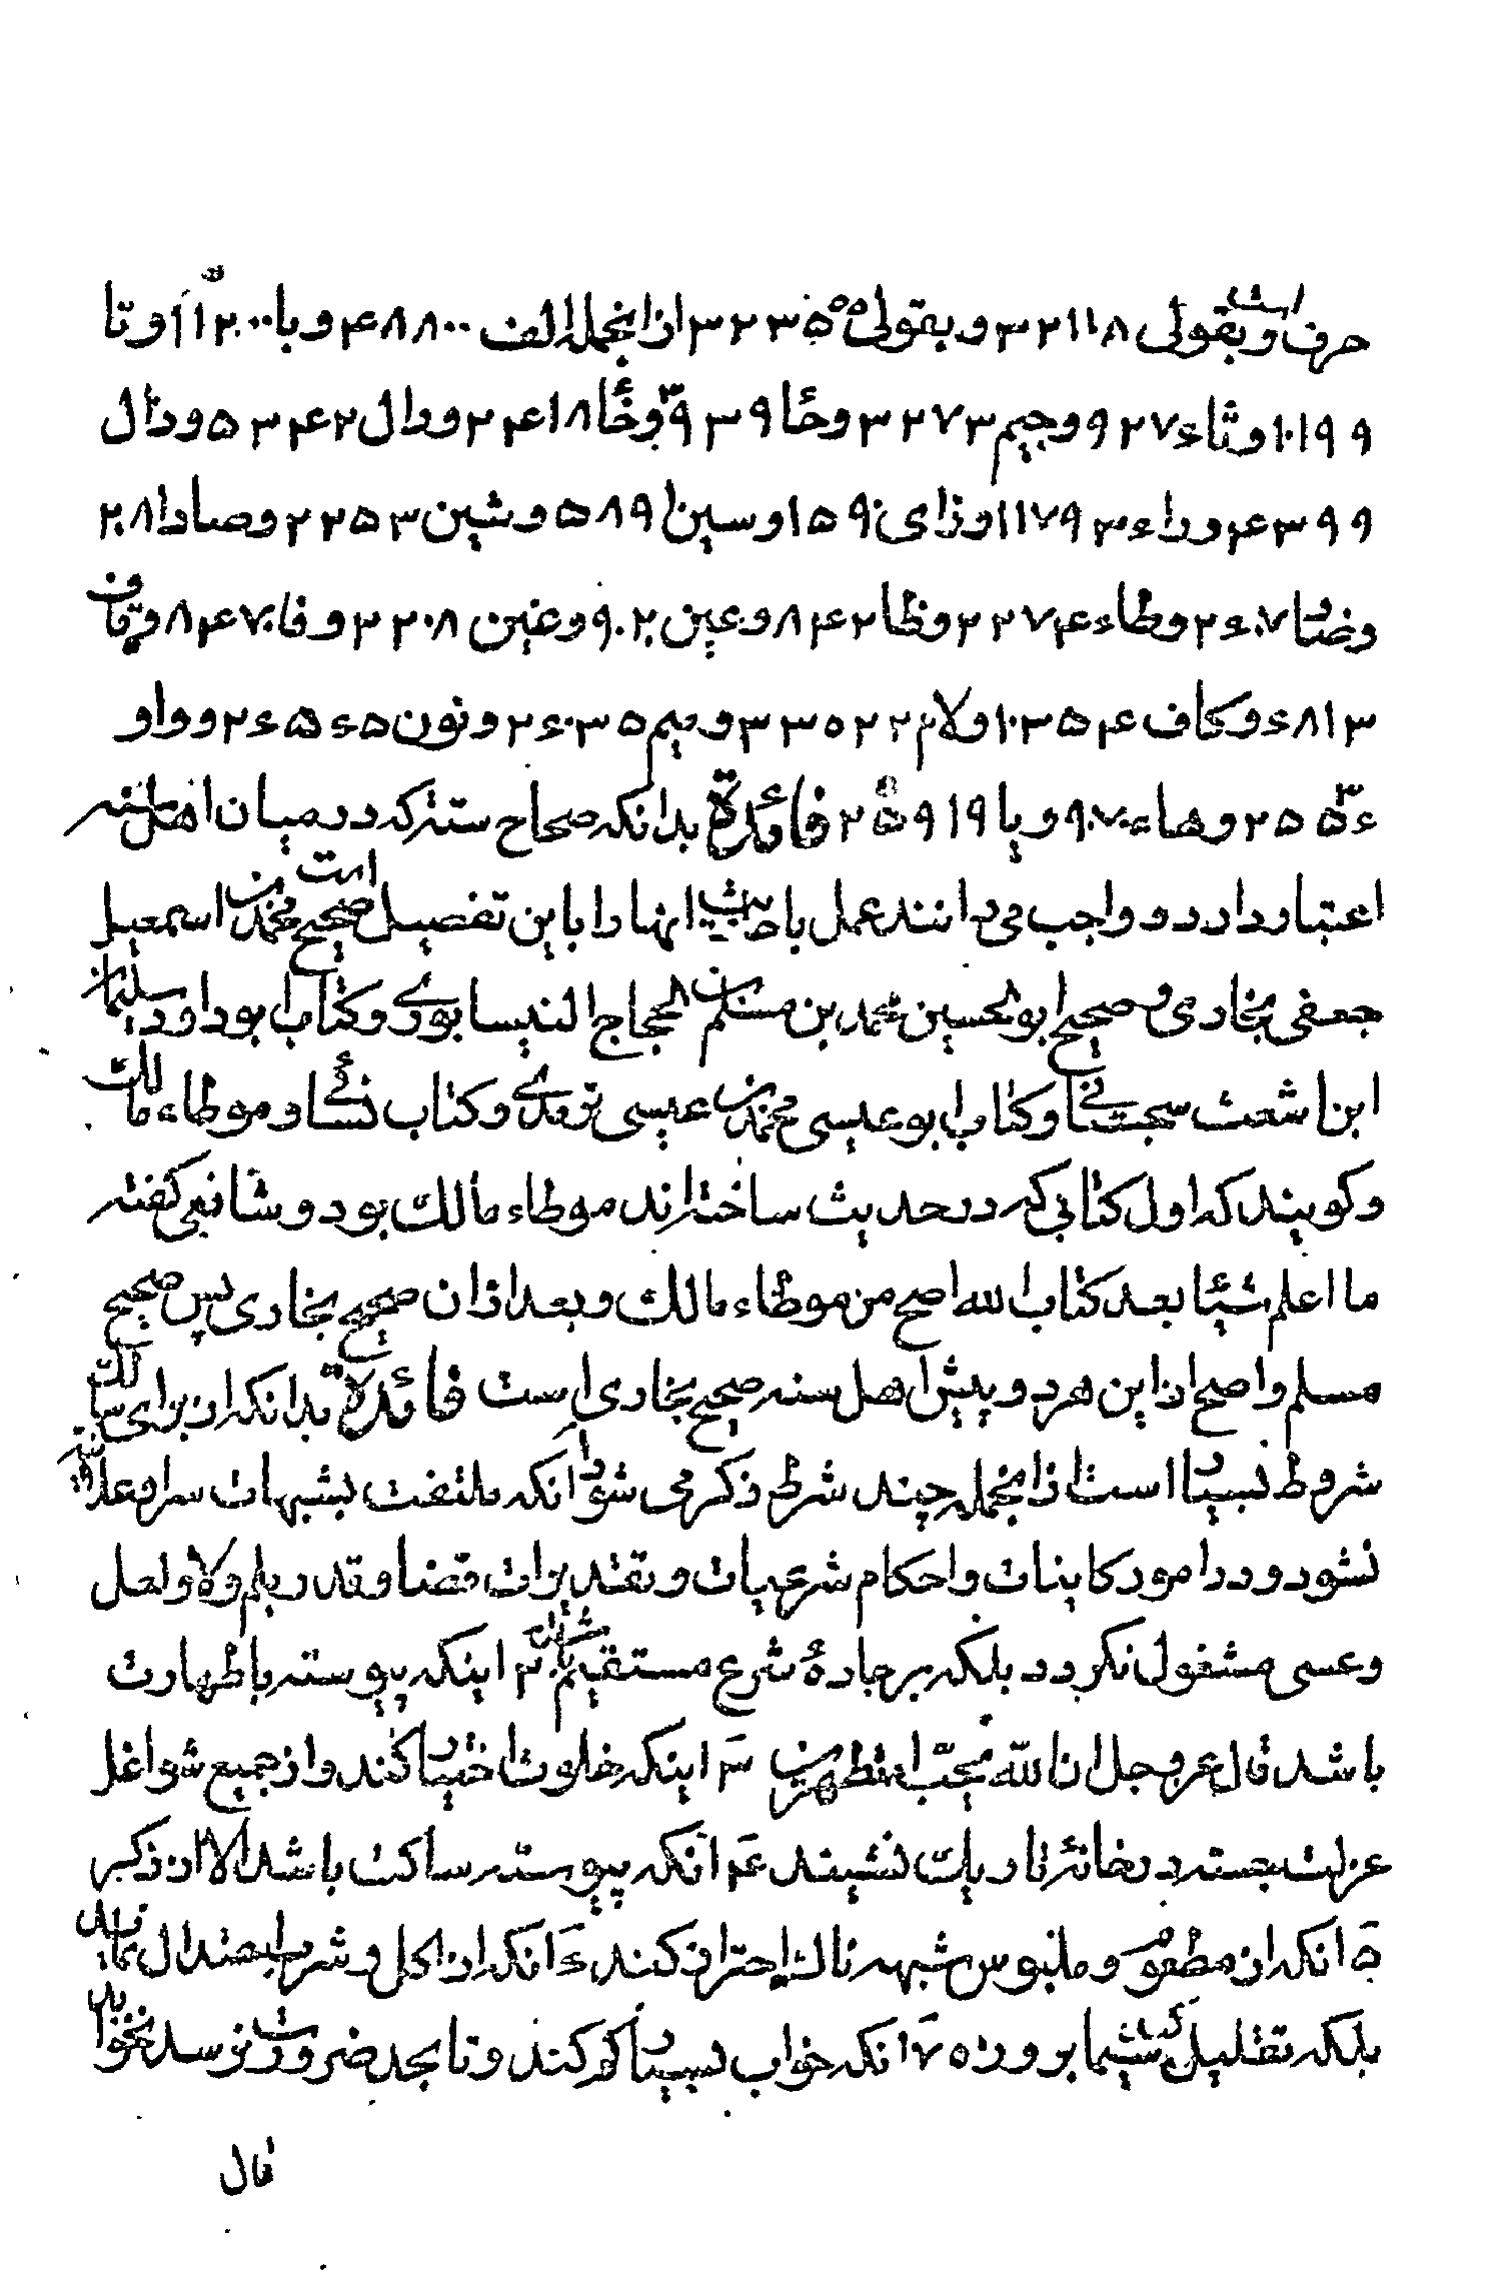 حرف است و بقولی ۳۲۱۱۸ و بقولی ۳۲۳۵۵۵ ازانجمله الف ۴۸۸۰۰ و با ۱۱۲۰۰ و تا
۱۰۱۹۹ و ثاء ۹۲۷۶ و جیم ۳۲۷۳ و حا ۳۹۳۹ و خا ۲۴۱۸ و دال ۵۳۴۲ و ذال
۴۳۹۹ و راء ۱۱۷۹۳ و زای ۱۵۹۰ و سین ۵۸۹۱ و شین ۲۲۵۳ و صاد ۲۰۸۱
و ضاد ۲۶۰۷ و طاء ۲۲۷۴ و ظا ۸۴۲ و عین ۹۰۲۰ و غین ۲۲۰۸ و فا ۸۴۷۰ و قاف
۶۸۱۳ و کاف ۱۰۳۵۴ و لام ۳۳۵۲۲ و میم ۲۶۰۳۵ و نون ۲۶۵۶۵ و واو
۲۵۵۳۶ و هاء ۹۰۷۰ و یا ۲۵۹۱۹ فائدة بدانکه صحاح سته که در میان اهل سنه
اعتبار دارد و واجب می دانند عمل باحادیث انها را باین تفصیل است صحیح محمد بن اسمعیل
جعفی بخاری و صحیح ابوالحسین محمد بن مسلم بن الحجاج النیسابوری و کتاب ابو داود سلیمان
ابن اشعث سجستانی و کتاب ابو عیسی محمد بن عیسی ترمدی و کتاب نسائی و موطاء مالک
و کویند که اول کتابی که در حدیث ساخته اند موطاء مالک بود و شافعی کفته
ما اعلم شیئا بعد کتاب الله اصح من موطاء مالک و بعد ازان صحیح بخاری پس صحیح
مسلم و اصح از این هر دو پیش اهل سنه صحیح بخاری است فائدة بدانکه از برای سالک
شروط بسیار است ازانجمله چند شرط ذکر می شود ا انکه ملتفت بشبهات سراو علانیة
نشود و در امور کاینات و احکام شرعیات و تقدیرات قضا و قدر بلم ولا و لعل
و عسی مشغول نکردد بلکه بر جادهٔ شرع مستقیم باشد ۲ اینکه پیوسته باطهارت
باشد قال عز و جل ان الله یحب المتطهرین ۳ اینکه خلوت اختیار کند و از جمیع شواغل
عزلت جسته در خانه تاریک نشیند ۴ انکه پیوسته ساکت باشد الا از ذکر
۵ انکه از مطعوم و ملبوس شبهه ناک احتراز کند ۶ انکه از اکل و شرب اعتدال نماید
بلکه تقلیل کند سیما بروزه ۷ انکه خواب بسیار کم کند و تا بحد ضرورت نرسد نخوابد
قال